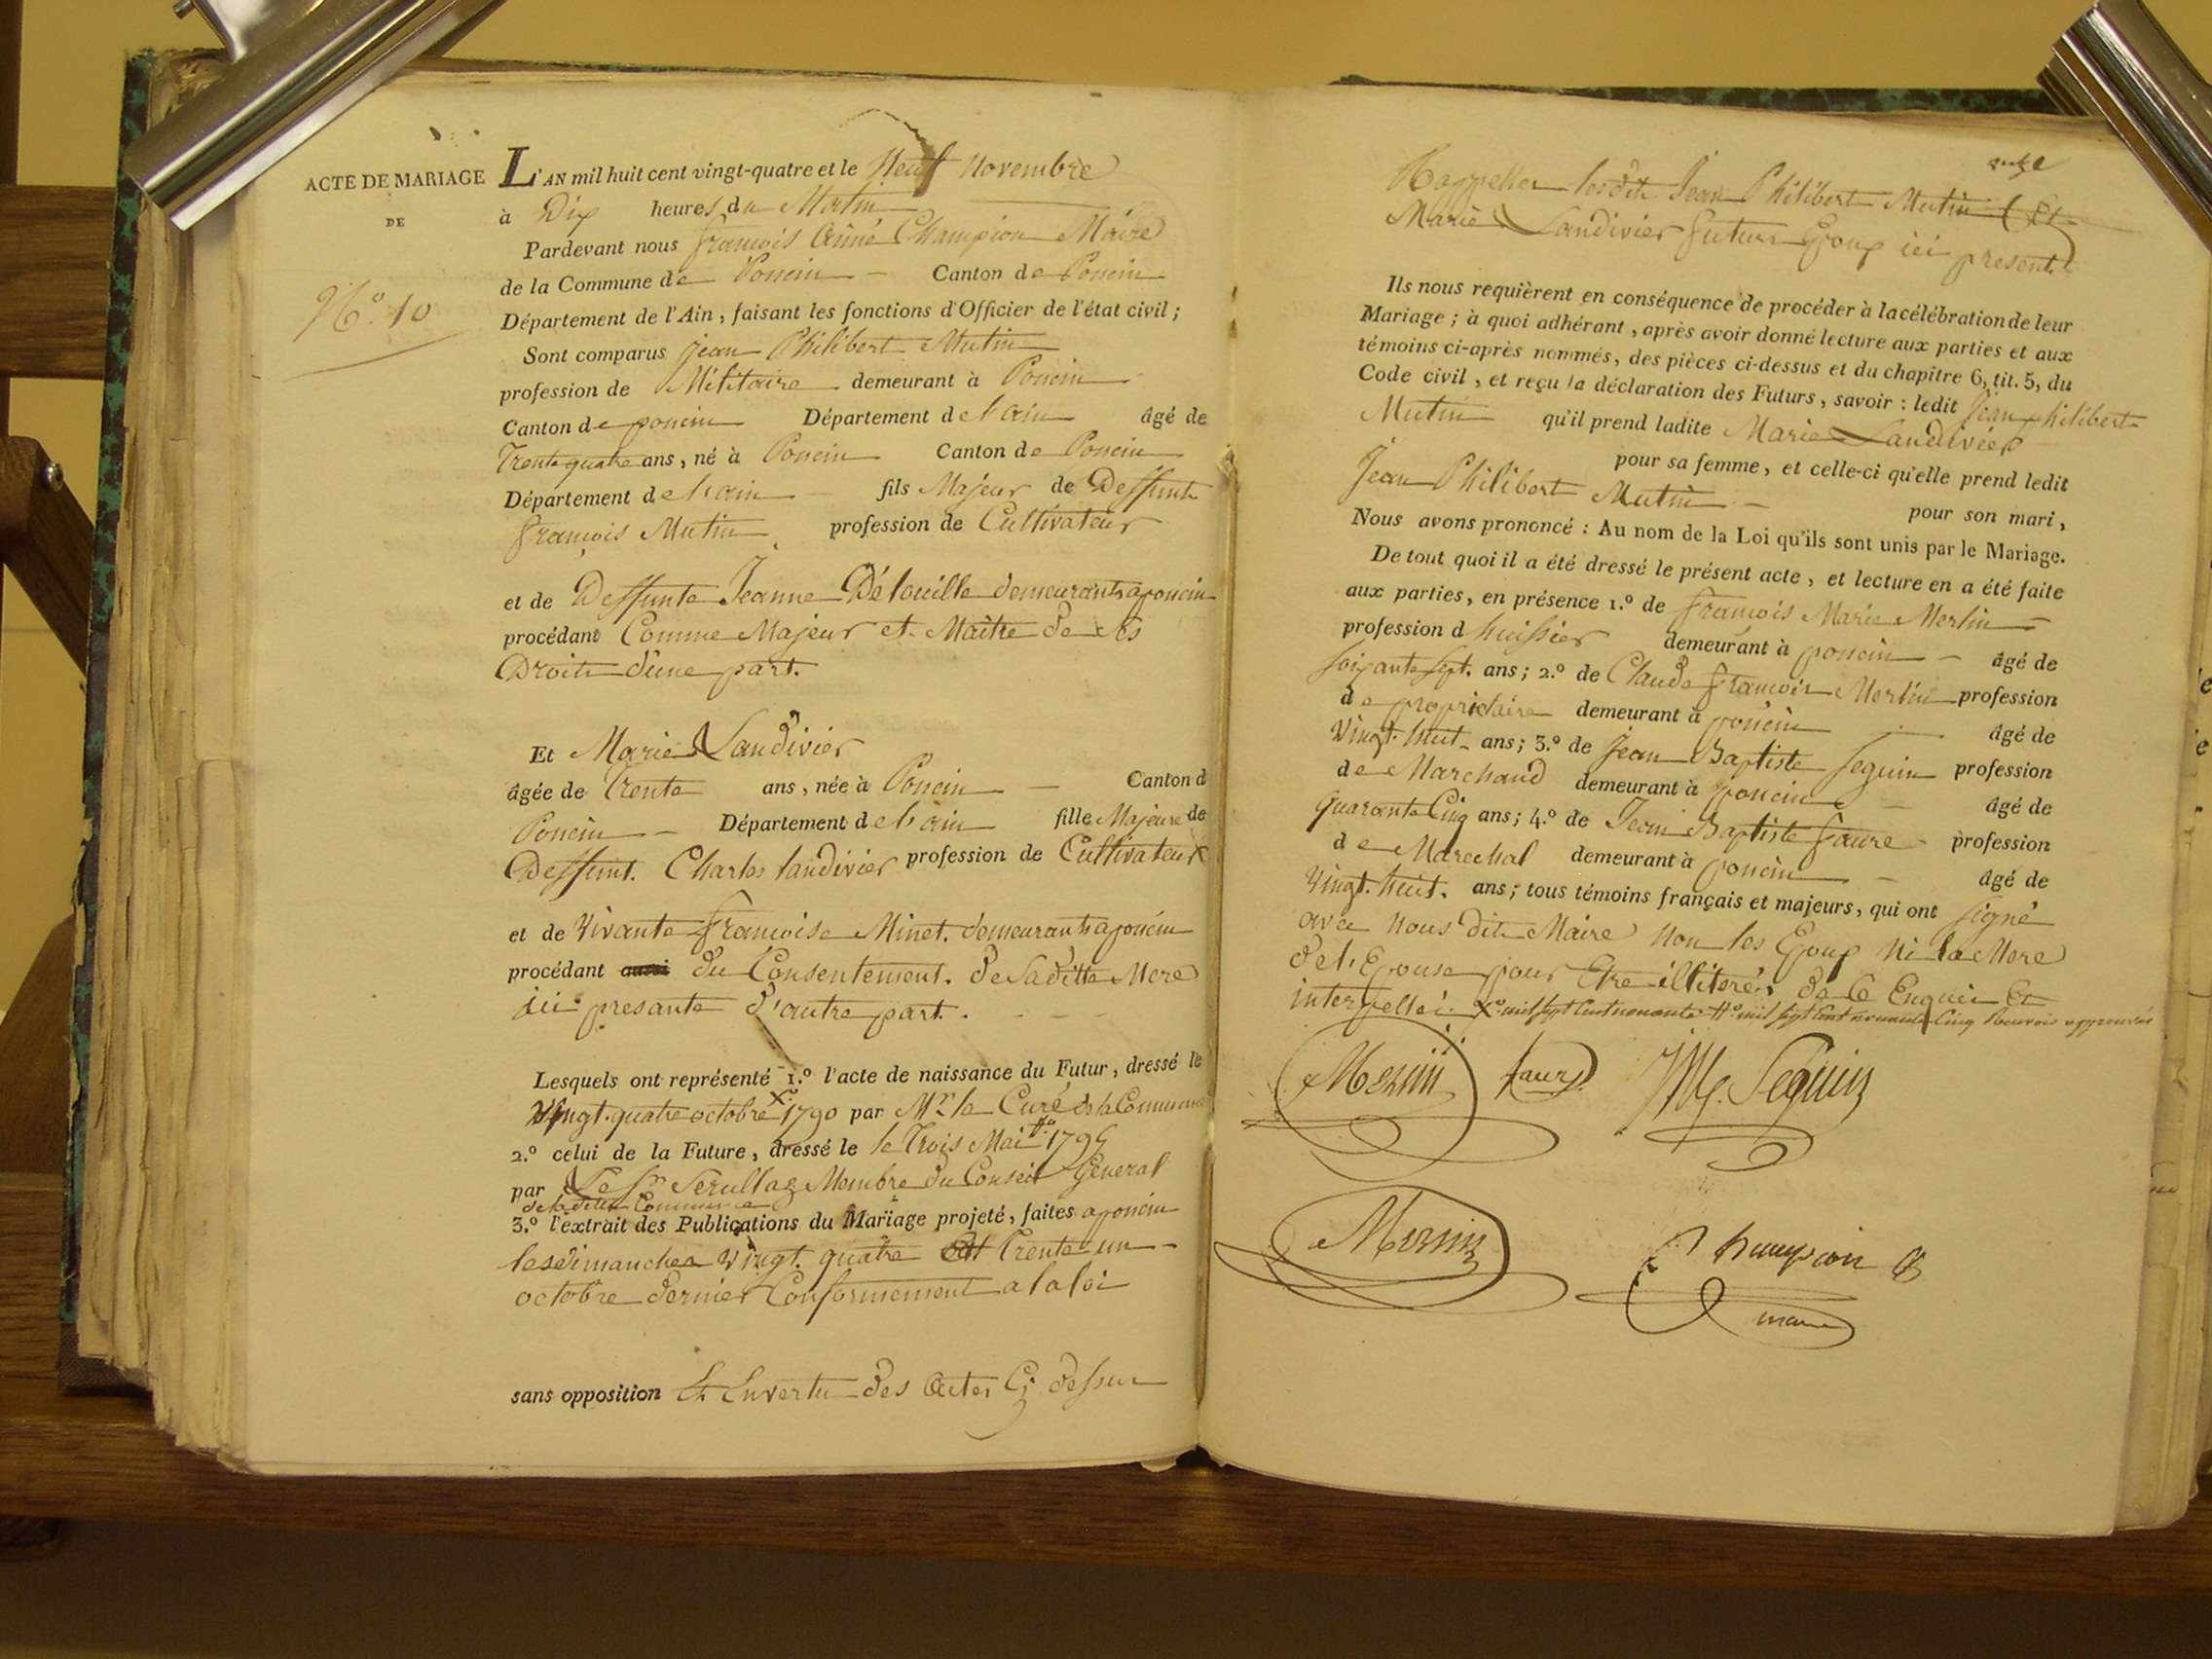 ACTE DE MARIAGE
DE
N.º 10
L'AN mil huit cent vingt-quatre et le Neuf Novembre
à Dix heures du Matin
Pardevant nous françois Aimé Champion Maire
de la Commune de Poncin Canton de Poncin
Département de l'Ain, faisant les fonctions d'Officier de l'état civil;
Sont comparus jean Philibert Mutin
profession de Militaire demeurant à Poncin
Canton de poncin Département de l'ain âgé de
Trente quatre ans, né à Poncin Canton de Poncin
Département de l'ain fils Majeur de Deffunt
françois Mutin profession de Cultivateur
et de Deffunte Jeanne Délouille demeurants a poncin
procédant Comme Majeur et Maitre de ses
Droits d'une part.
Et Marie Landivier
âgée de Trente ans, née à Poncin Canton d
Poncin Département de l'ain fille Majeure de
Deffunt. Charles landivier profession de Cultivateur
et de Vivante françoise Minet. demeurants a poncin
procédant du Consentement. de Saditte Mere
ici presante d'autre part.
Lesquels ont représenté 1.º l'acte de naissance du Futur, dressé le
Vingt.quatre octobre X 1790 par Mr le Curé de la Commune
2.º celui de la Future, dressé le le Trois Mai 1795
par Le Sr Serullaz Membre du Conseil General
de la ditte Commune
3.º l'extrait des Publications du Mariage projeté, faites a poncin
les dimanches Vingt. quatre Trente un
octobre dernier Conformement a la loi
sans opposition Et Envertu des Actes Ci dessus
onze
Rappelles lesdits Jean Philibert Mutin Et
Marie Landivier futurs Epoux ici presents
Ils nous requièrent en conséquence de procéder à la célébration de leur
Mariage; à quoi adhérant, après avoir donné lecture aux parties et aux
témoins ci-après nommés, des pièces ci-dessus et du chapitre 6, tit. 5, du
Code civil, et reçu la déclaration des Futurs, savoir : ledit Jean philibert
Mutin qu'il prend ladite Marie Landivier
pour sa femme, et celle-ci qu'elle prend ledit
Jean Philibert Mutin pour son mari,
Nous avons prononcé : Au nom de la Loi qu'ils sont unis par le Mariage.
De tout quoi il a été dressé le présent acte, et lecture en a été faite
aux parties, en présence 1.º de françois Marie Merlin
profession d'huissier demeurant à poncin âgé de
soixante sept. ans; 2.º de Claude françois Merlin profession
de propriétaire demeurant à poncin âgé de
Vingt. huit ans; 3.º de Jean Baptiste Seguin profession
de Marchand demeurant à poncin âgé de
Quarante Cinq ans; 4.º de Jean Baptiste faure profession
de Marechal demeurant à poncin âgé de
Vingt. huit. ans; tous témoins français et majeurs, qui ont signé
avec nous dit Maire Non les Epoux Ni la Mere
de l'Epouse pour Etre illiterés de Ce Enquis Et
interpellés. X mil sept Cent nonante mil sept Cent nonante Cinq approuvés
Merlin faure Seguin
Merlin Champion
maire